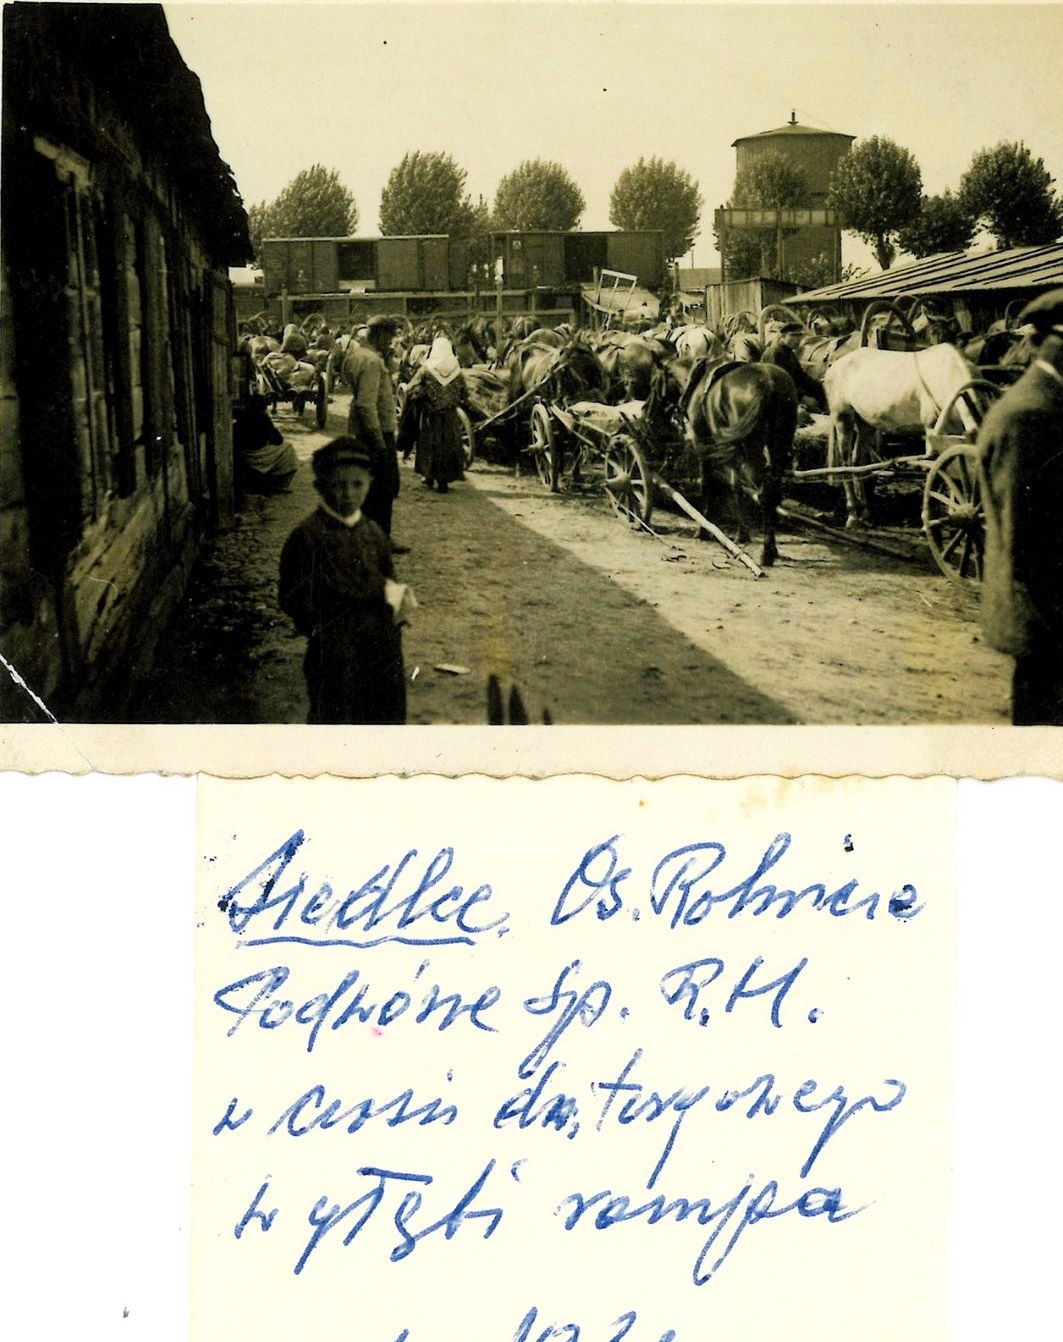 Siedlce. Os. Rolnicze
Podwórze Sp. R.H.
w czasie dn. targowego
w głębi rampa